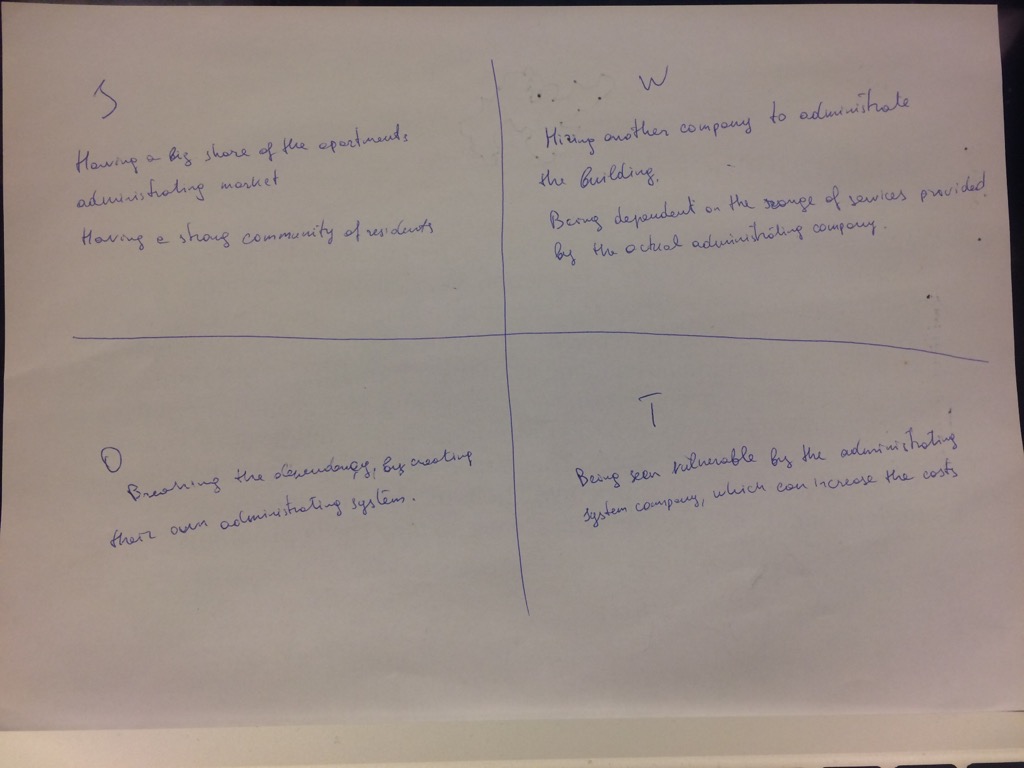 S
Having a big share of the apartments
administrating market
Having a strong community of residents
W
Hiring another company to administrate
the building.
Being dependent on the range of services provided
by the actual administrating company.
O
Breaking the dependancy, by creating
their own administrating system.
T
Being seen vulnerable by the administrating
system company, which can increase the costs